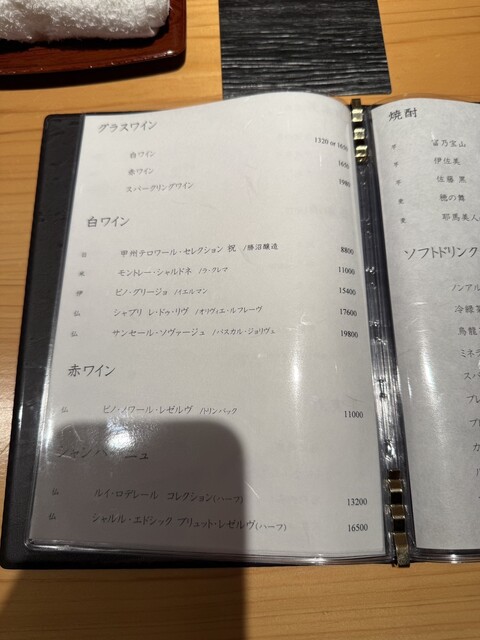 グラスワイン
白ワイン 1320 or 1650
赤ワイン 1650
スパークリングワイン 1980
白ワイン
日 甲州テロワール・セレクション 祝 /勝沼醸造 8800
米 モントレー・シャルドネ /ラ・クレマ 11000
伊 ピノ・グリージョ /イエルマン 15400
仏 シャブリ レ・ドゥ・リヴ /オリヴィエ・ルフレーヴ 17600
仏 サンセール・ソヴァージュ /パスカル・ジョリヴェ 19800
赤ワイン
仏 ピノ・ノワール・レゼルヴ /トリンバック 11000
シャンパーニュ
仏 ルイ・ロデレール コレクション(ハーフ) 13200
仏 シャルル・エドシック ブリュット・レゼルヴ(ハーフ) 16500
焼酎
芋 富乃宝山
芋 伊佐美
芋 佐藤 黒
麦 穂の舞
麦 耶馬美人
ソフトドリンク
ノンアル
冷緑
烏龍
ミネ
スパ